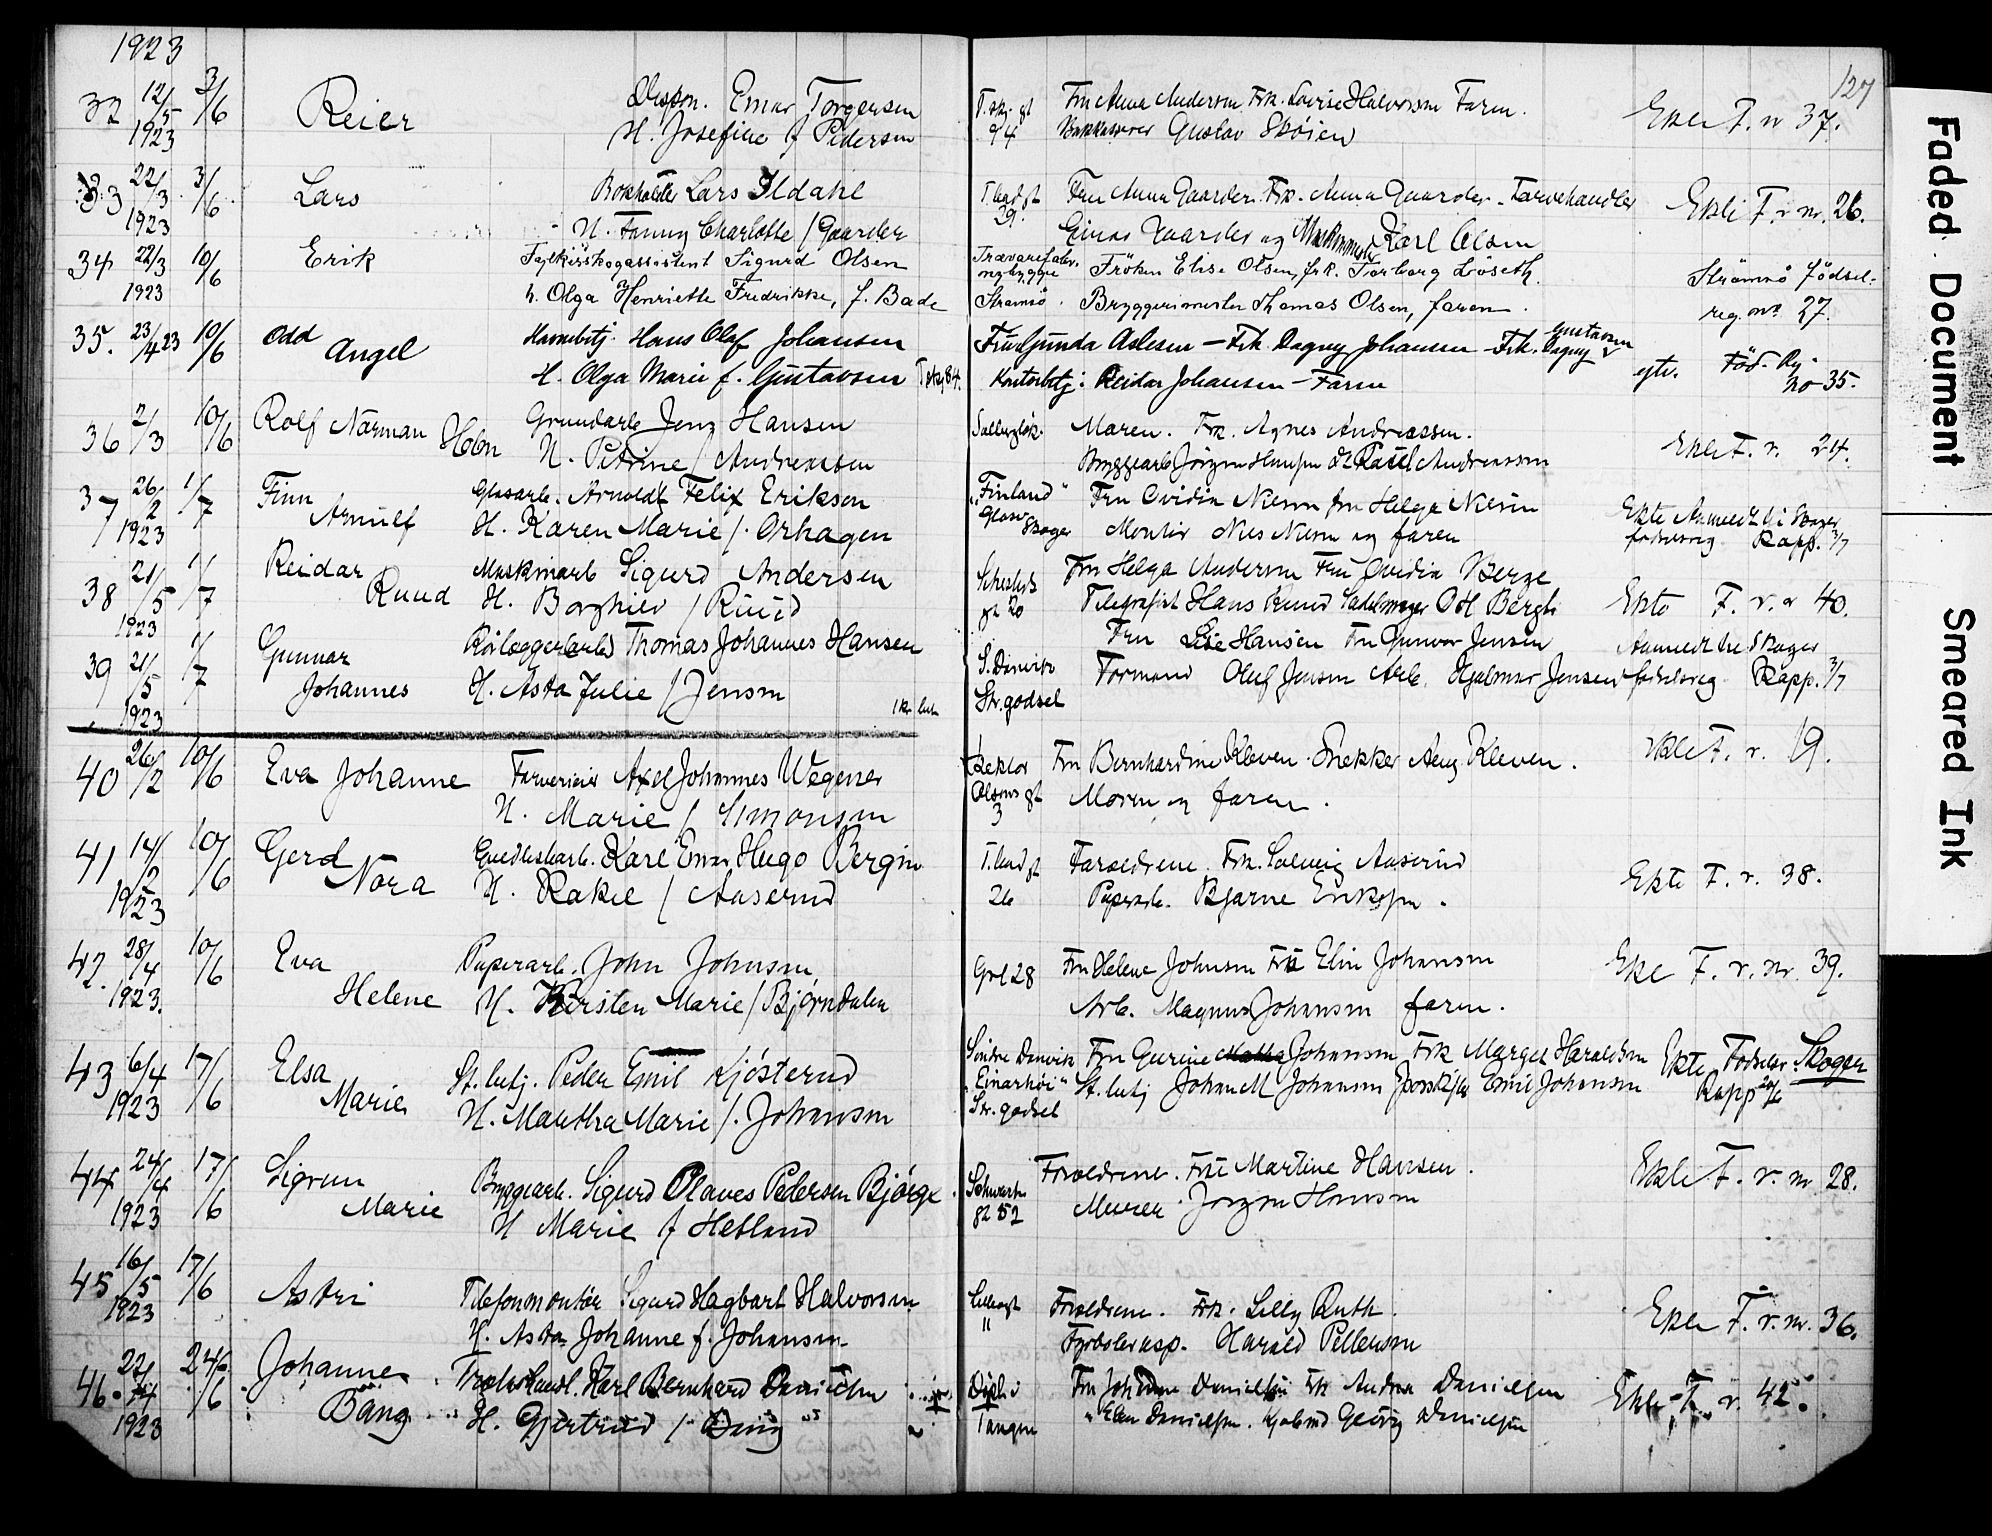 1923
127
32 12/5 1923 3/6 Reier Dispon. Einar Torgersen T.skj. gt 94 Fru Anna Andersen Frk. Lovise Halvorsen Faren. Ekte F. nr 37.
H. Josefine f Pedersen Gustav Skøien
33 22/3 1923 3/6 Lars Bokholder Lars Ildahl T.land gt 29. Fru Anna Gaarder. Frk. Anna Gaarder. Farvehandler Ekte F r nr. 26.
H. Fanny Charlotte / Gaarder Einar Gaarder og Karl Olsen
34 22/3 1923 10/6 Erik Sigurd Olsen Trævarefabr. Frøken Elise Olsen, frk. Torborg Løseth. Strømsø fødsel-
h. Olga Henriette Fredrikke, f. Bade Strømsø. Bryggerimester Thomas Olsen, faren. reg. nr. 27.
35. 23/4 23 10/6 Odd Angel Havnebetj. Hans Olaf Johansen Aslesen – Frk. Dagny Johansen – Frk. Dagny Gustavsen egte. Fød. Rg
H. Olga Marie f. Gustavsen T skj 84. Kontorbetj: Reidar Johansen – Faren no 35.
36 2/3 10/6 Rolf Norman Holm Grundarb Jens Hansen Moren. Frk. Agnes Andreassen. Ekte F. r. 24.
H. Petrine / Andreassen Bryggearb Jörgen Hansen Andreassen
37 26/2 1923 1/7 Finn Arnulf Glasarb. Arnoldt Felix Erikson "Finland" Glasv. Skoger Fru Ovidia Nilsen fru Helga Nilsen Ekte Anmeldt til Skoger
H. Karen Marie /. Orhagen Montör Nils Nilsen og faren fødselsreg Rapp. 3/7
38 21/5 1923 1/7 Reidar Ruud Maskinarb Sigurd Andersen gt 20 Fru Helga Andersen Fru Ovidia Berge Ekte F. r. nr 40.
H. Borghild / Ruud Telegrafist Hans Ruud Sadelmager O H Bergh
39 21/5 1923 1/7 Gunnar Johannes Rørlæggerarb Thomas Johannes Hansen S. Danvik Str. godset Fru Lise Hansen Fru Gunvor Jensen Anmeldt til Skoger
H. Asta Julie / Jensen Formand Oluf Jensen Arb. Hjalmar Jensen fødselsreg Rapp. 3/7
40 26/2 10/6 Eva Johanne Farverieier Axel Johannes Wegener Rektor Olsens gt 3 Fru Bernhardine Kleven. Snekker Aug Kleven. Ekte F. r. 19.
H. Marie / Simonsen Moren og faren.
41 14/2 1923 10/6 Gerd Nora Karl Einar Hugo Bergin T. land gt 26 Foreldrene. Frk. Solveig Aaserud Ekte F. r. 38.
H. Rakel / Aaserud Papirarb. Bjarne Eriksen.
42. 28/4 1923. 10/6 Eva Helene Papirarb. John Johnsen Grl 28 Fru Helene Johnsen Frk Elin Johansen Ekte F. r. nr. 39.
H. Kirsten Marie / Bjørndalen Arb. Magnus Johansen faren.
43 6/4 1923 17/6 Elsa Marie St. betj. Peder Emil Kjösterud Söndre Danvik "Einarhöi" Str. godset Fru Gurine Johansen Frk Margit Haraldsen Ekte Fødselsr. Skoger
H. Martha Marie /. Johansen St. betj Johan M Johansen Emil Johansen Rapp
44 24/4 1923 17/6 Sigrun Marie Bryggearb. Sigurd Olaves Pedersen Bjørge. Schwartz gt 52 Foreldrene. Frk Martine Hansen. Ekte F. r. nr 28.
H Marie f Hetland Murer Jørgen Hansen
45 16/5 1923 17/6 Astri Telefonmontør Sigurd Hagbart Halvorsen 11 Foreldrene. Frk. Lilly Ruth. Ekte F. r. nr. 36.
H. Asta Johanne f. Johansen Fyrbøterasp. Harald Pettersen
46. 22/4 1923 24/6 Johanne Bang Karl Bernhard Danielsen Tangen Fru Johanne Danielsen Frk Andrea Danielsen Ekte F. r. 42.
H. Gjertrud / Bang Danielsen. Georg Danielsen
Faded Document
Smeared Ink